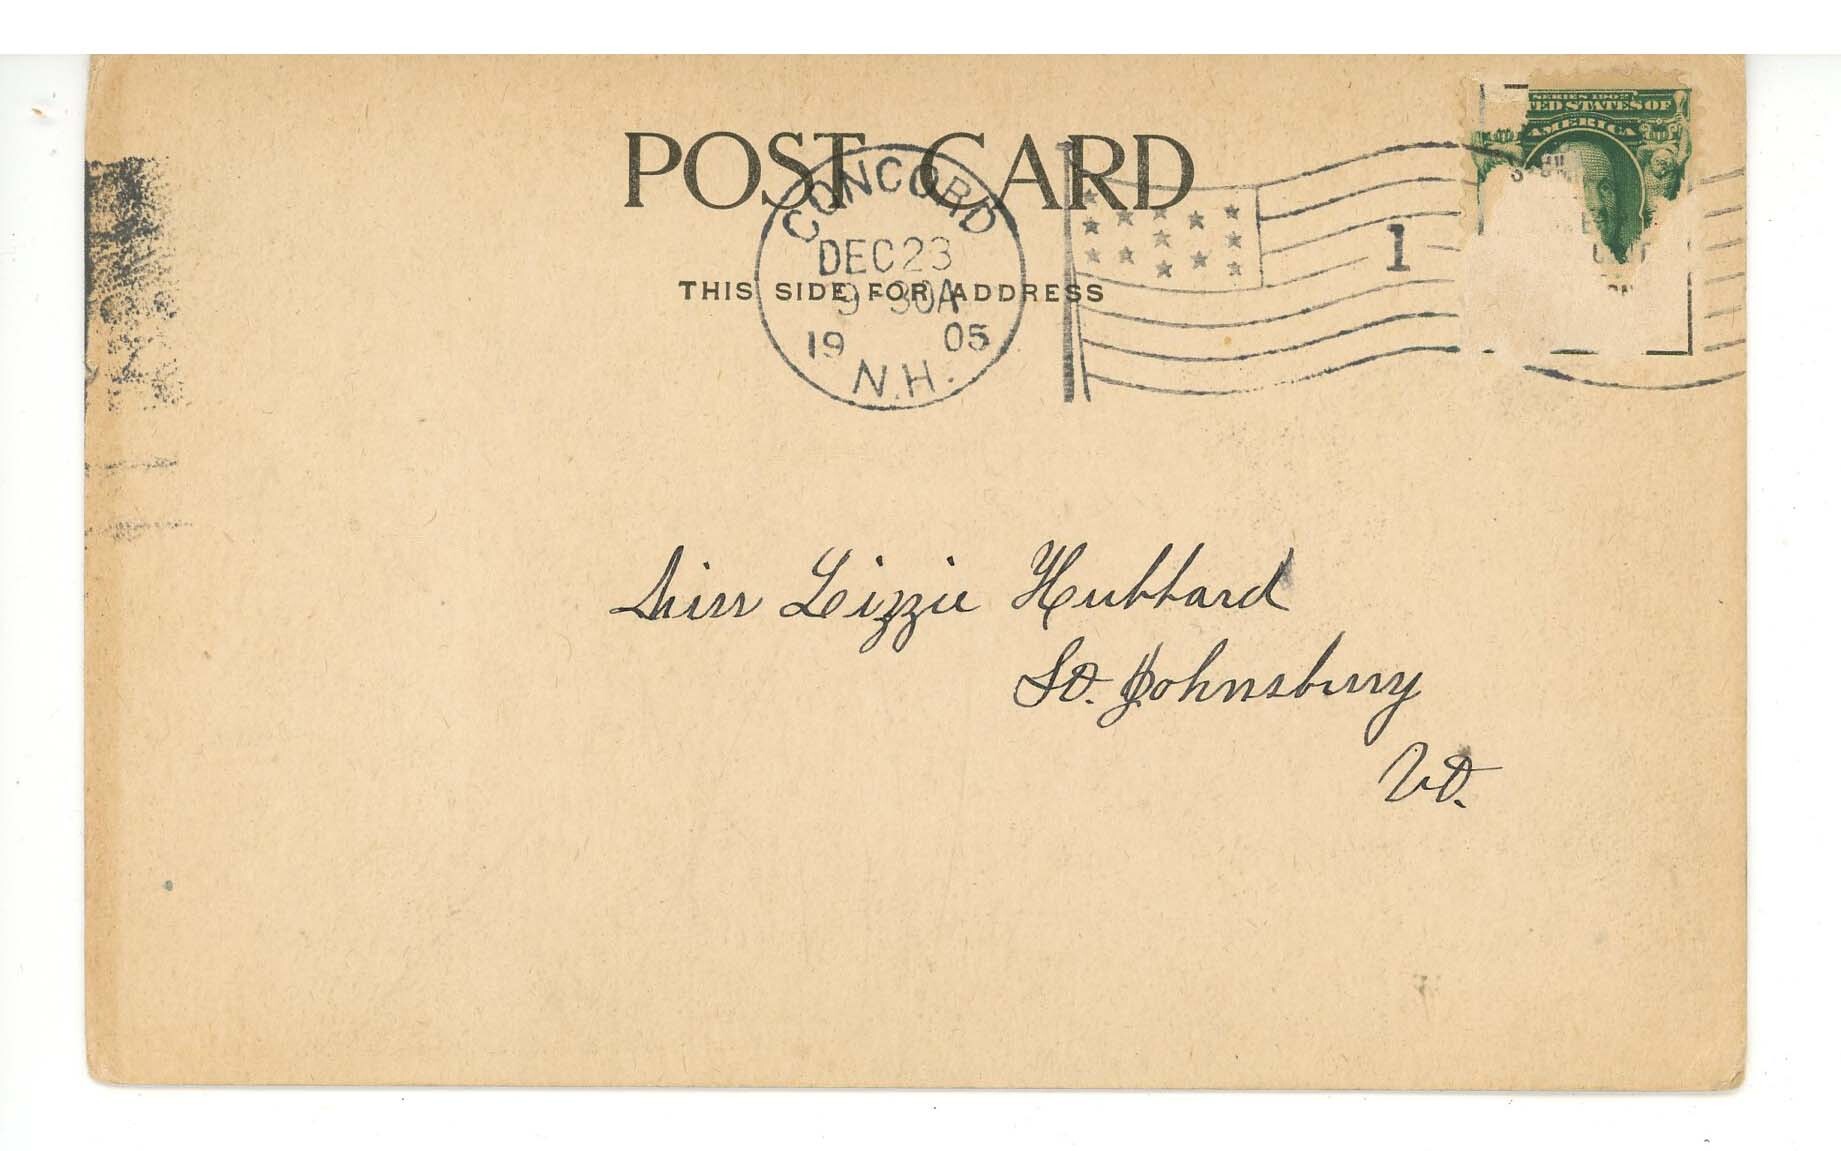 POST CARD
THIS SIDE FOR ADDRESS
CONCORD
DEC 23
9 30A
19 05
N.H.
1
SERIES 1902
TED STATES OF
AMERICA
Miss Lizzie Hubbard
St. Johnsbury
Vt.